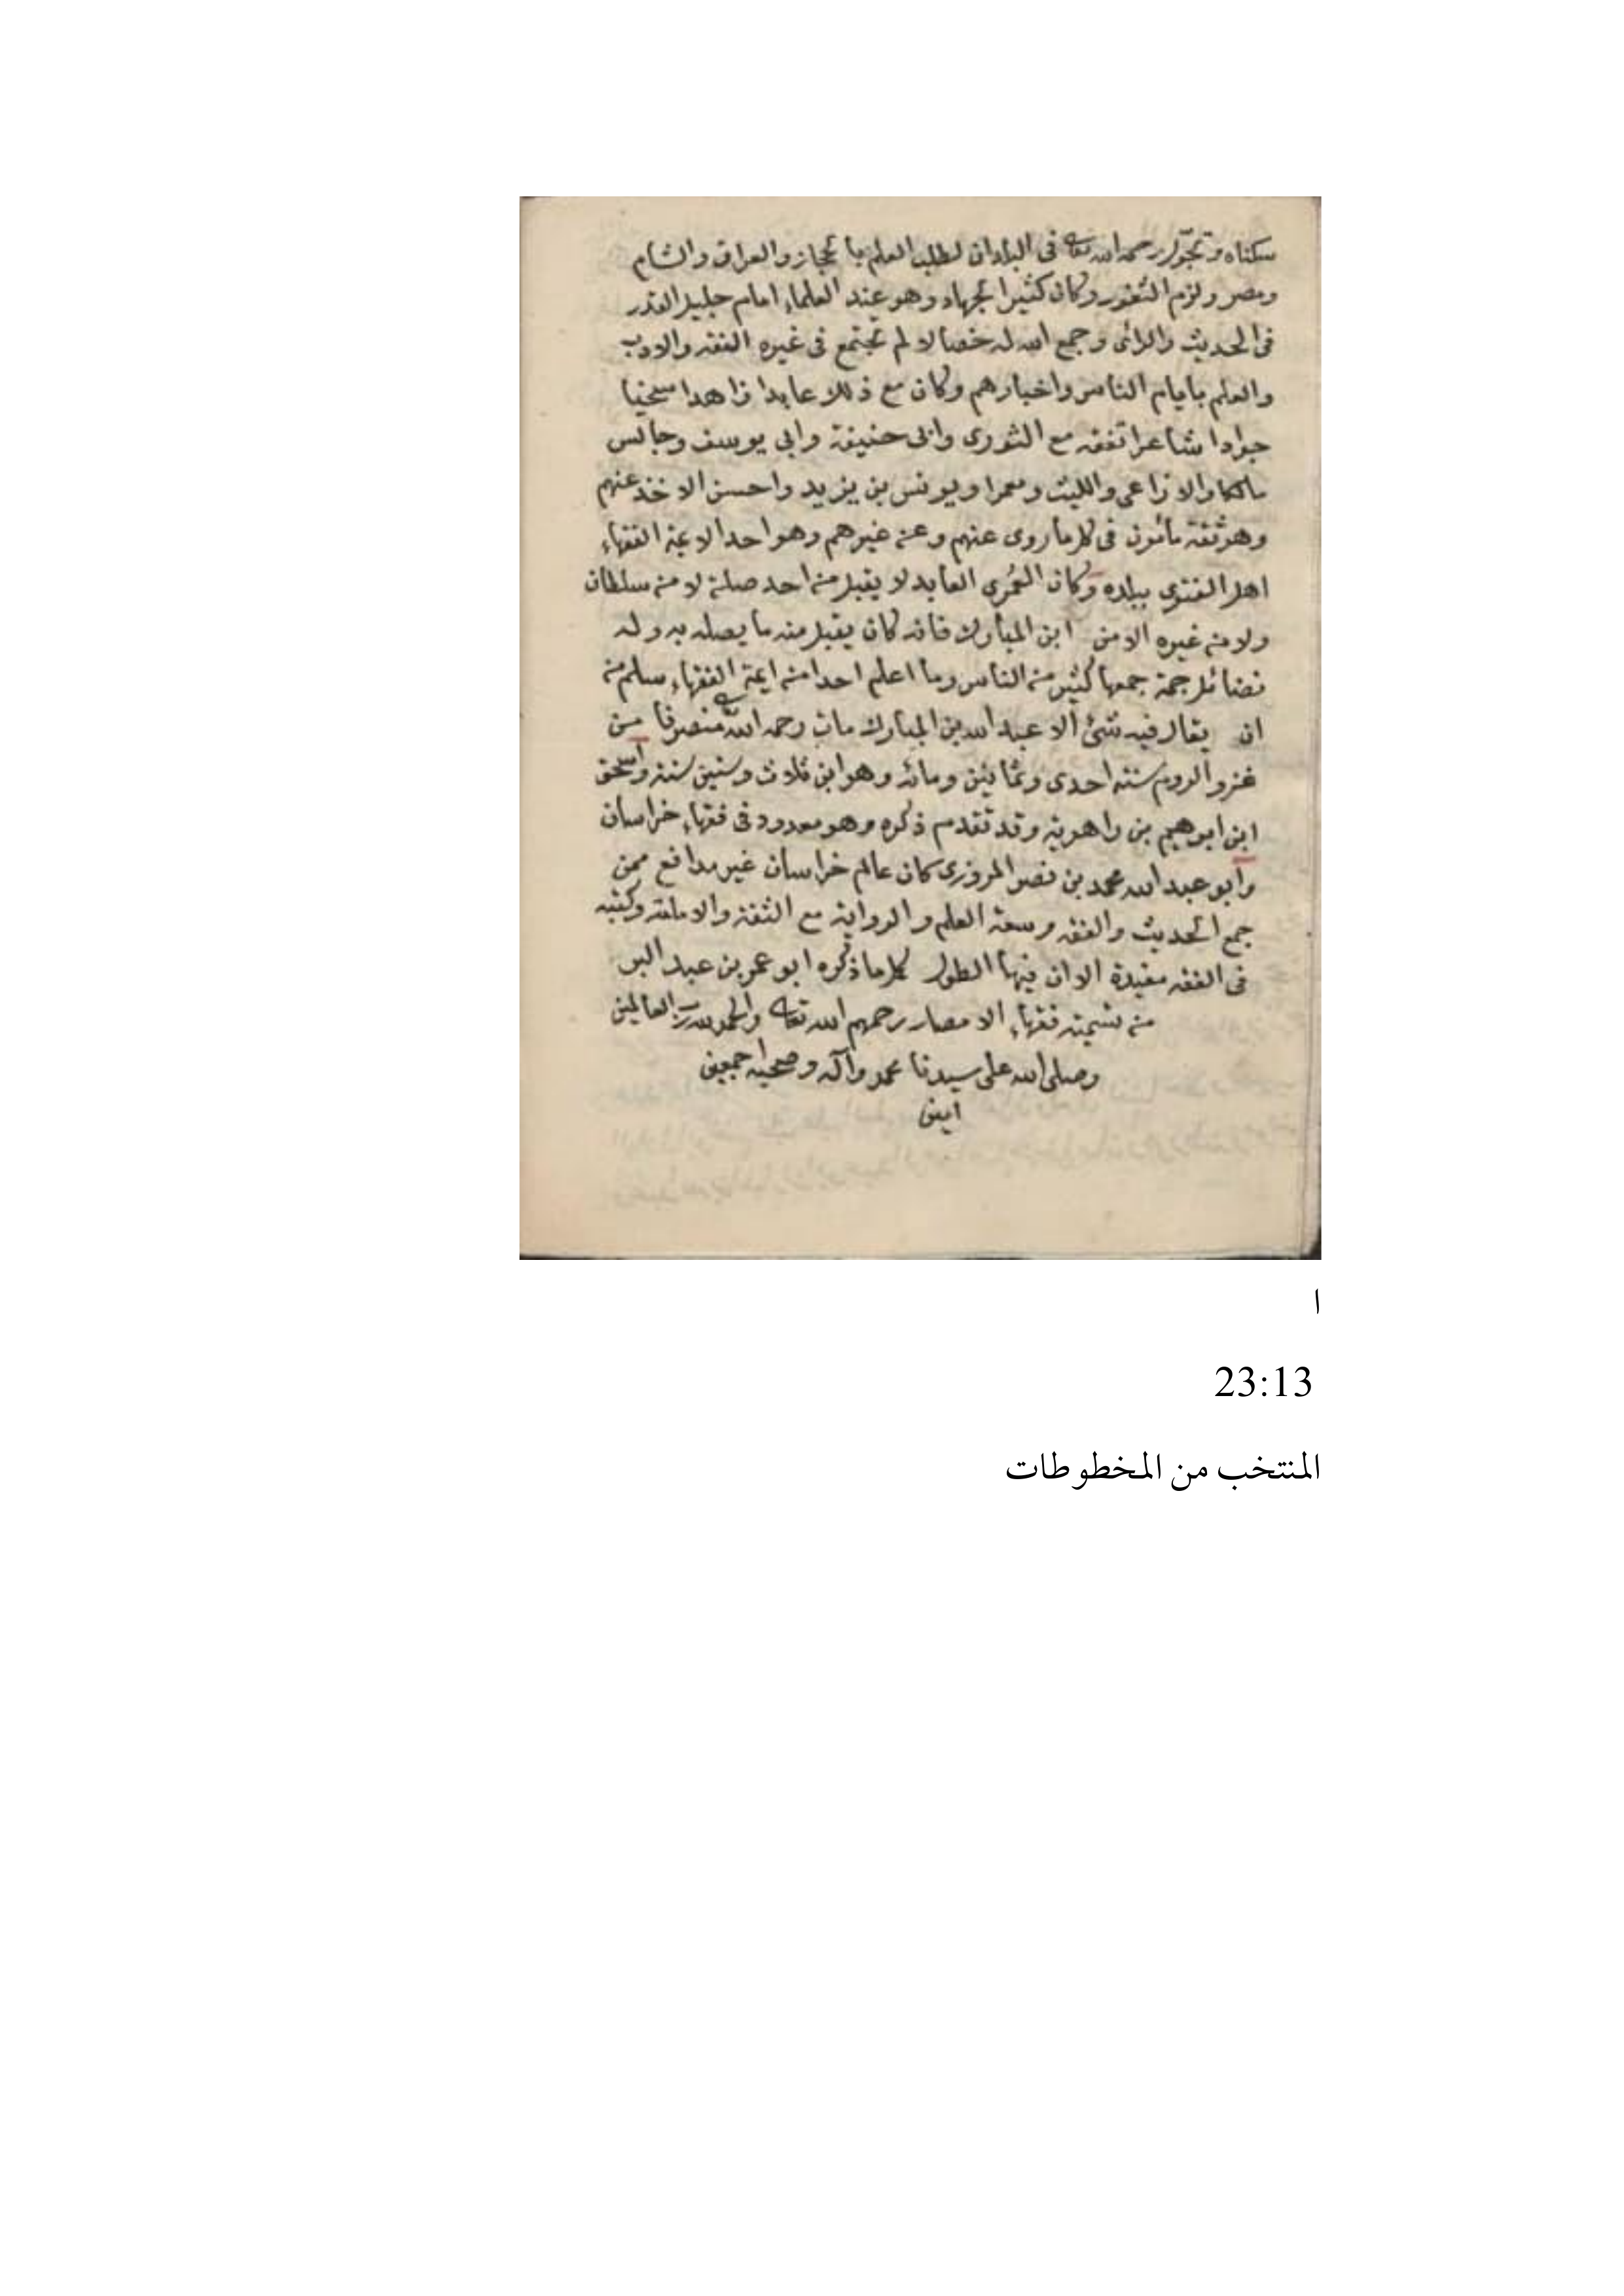 سكناه وتجوّل رحمه الله تعالى فى البلدان لطلب العلم بالحجاز والعراق والشام
ومصر ولزم الثغور وكان كثير الجهاد وهو عند العلماء امام جليل القدر
فى الحديث والرائى وجمع الله له خصالا لم تجتمع فى غيره الفقه والادب
والعلم بايام الناس واخبارهم وكان مع ذلك عابدا زاهدا سخيا
جوادا شاعرا تفقه مع الثورى وابى حنيفة وابي يوسف وجالس
مالكا والاوزاعى والليث ومعمرا ويونس بن يزيد واحسن الاخذ عنهم
وهو ثقة مأمون فى كل ما روى عنهم وعن غيرهم وهو احد الائمة الفقهاء
اهل الفتوى ببلده وكان العُمَرى العابد لا يقبل من احد صلة لا من سلطان
ولا من غيره الا من ابن المبارك فانه كان يقبل منه ما يصله به وله
فضائل جمة جمعها كثير من الناس وما اعلم احدا من ايمة الفقهاء سلم من
ان يقال فيه شئ الا عبد الله بن المبارك مات رحمه الله تعالى منصرفا من
غزو الروم سنة احدى وثمانين ومائة وهو ابن ثلاث وستين سنة واسحق
ابن ابراهيم بن راهوية وقد تقدم ذكره وهو معدود فى فقهاء خراسان
وابو عبد الله محمد بن نصر المروزى كان عالم خراسان غير مدافع ممن
جمع الحديث والفقه وسعة العلم والرواية مع الثقة والامانة وكتبه
فى الفقه مفيدة الا ان فيها الطول كل ما ذكره ابو عمر بن عبد البر
من تسمية فقهاء الامصار رحمهم الله تعالى والحمد لله رب العالمين
وصلى الله على سيدنا محمد وآله وصحبه اجمعين
امين
ا
23:13
المنتخب من المخطوطات